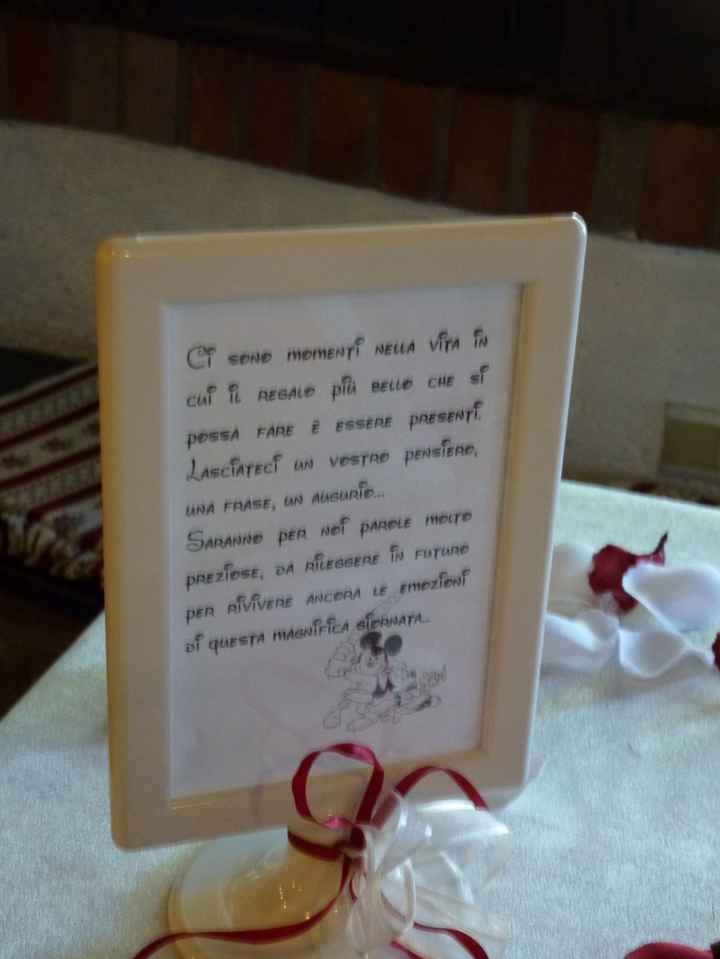 Ci sono momenti nella vita in
cui il regalo più bello che si
possa fare è essere presenti.
Lasciateci un vostro pensiero,
una frase, un augurio...
Saranno per noi parole molto
preziose, da rileggere in futuro
per rivivere ancora le emozioni
di questa magnifica giornata...